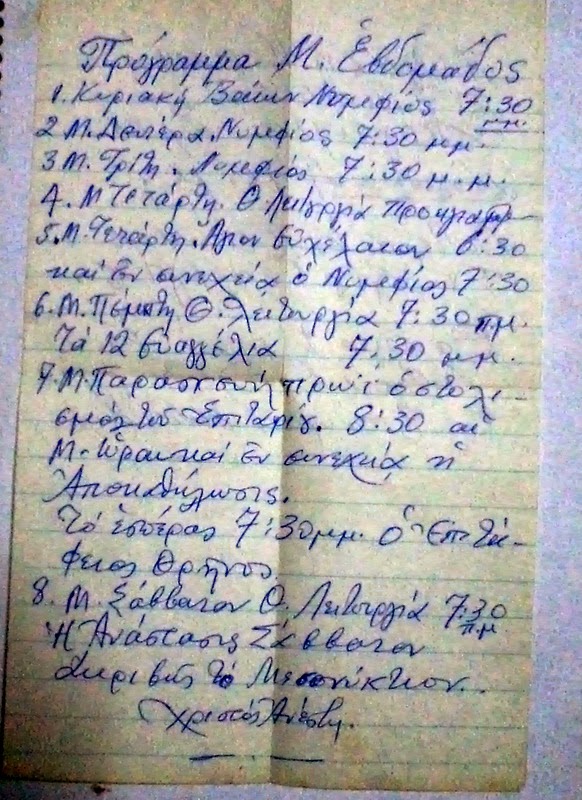 Πρόγραμμα Μ. Ἑβδομάδος
1. Κυριακή Βαΐων Νυμφίος 7:30 μμ.
2 Μ. Δευτέρα. Νυμφίος 7:30 μμ.
3 Μ. Τρίτη. Νυμφίος 7:30 μ.μ.
4. Μ Τετάρτη. Θ Λειτουργία προηγιασμ-
5. Μ. Τετάρτη. Ἅγιον εὐχέλαιον 6:30
καί ἐν συνεχεία ὁ Νυμφίος 7:30
6. Μ. Πέμπτη Θ. Λειτουργία 7:30 π.μ.
Τά 12 Εὐαγγέλια 7:30 μμ.
7. Μ. Παρασκευή πρωΐ ὁ στολι-
σμός τοῦ Ἐπιταφίου. 8:30 αἱ
Μ. Ὧραι καί ἐν συνεχεία ἡ
Ἀποκαθήλωσις.
Τό ἑσπέρας 7:30 μμ. Ὁ Ἐπιτά-
φειος Θρῆνος.
8. Μ. Σάββατον Θ. Λειτουργία 7:30 π.μ
Ἡ Ἀνάστασις Σάββατον
ἀκριβῶς τό Μεσονύκτιον..
Χριστός Ἀνέστη.